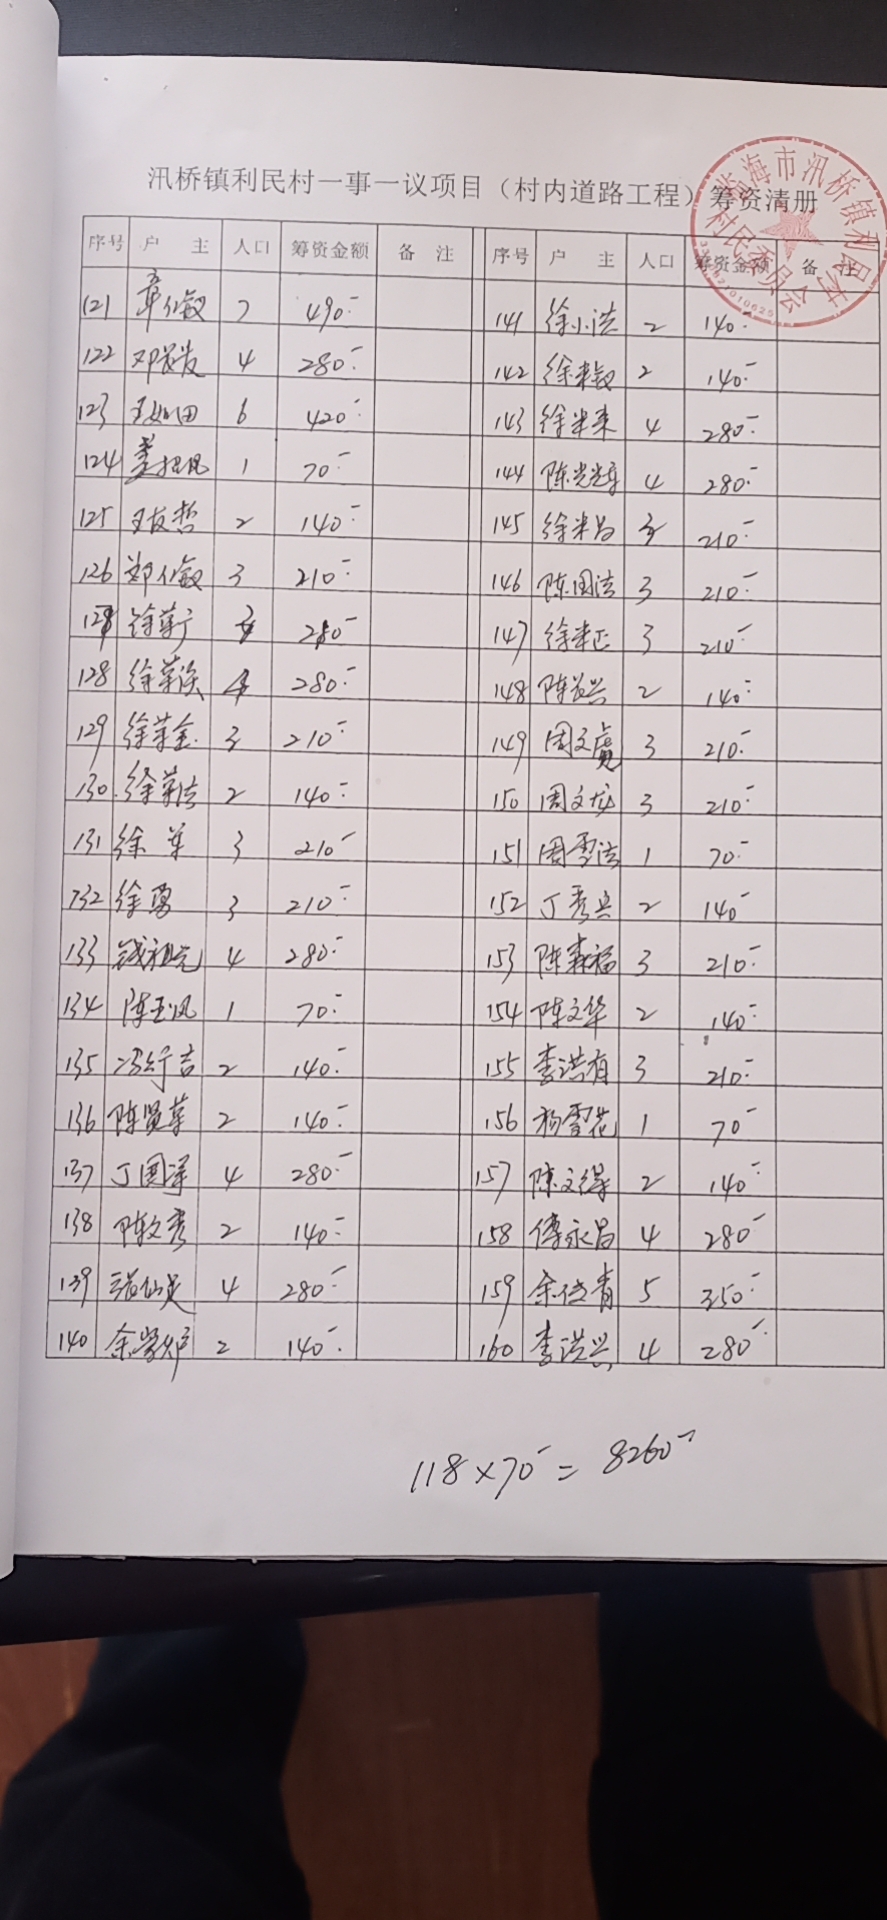 汛桥镇利民村一事一议项目（村内道路工程）筹资清册
临海市汛桥镇利民村村民委员会
序号 户 主 人口 筹资金额 备 注 序号 户 主 人口 筹资金额 备 注
121 章仙敏 7 490 141 徐小法 2 140
122 邓 4 280 142 徐米 2 140
123 王如田 6 420 143 徐米来 4 280
124 1 70 144 陈光辉 4 280
125 王友哲 2 140 145 徐米昌 3 210
126 郑仙敏 3 210 146 陈国法 3 210
127 徐 280 147 徐米正 3 210
128 徐 4 280 148 陈兴 2 140
129 徐金 3 210 149 周文 3 210
130 徐法 2 140 150 周文龙 3 210
131 徐 3 210 151 周雪法 1 70
132 徐勇 3 210 152 丁秀兵 2 140
133 钱祖 4 280 153 陈森福 3 210
134 陈玉凤 1 70 154 陈文华 2 140
135 冯行吉 2 140 155 李洪有 3 210
136 陈贤 2 140 156 杨雪花 1 70
137 丁国泽 4 280 157 陈文 2 140
138 陈文秀 2 140 158 傅永昌 4 280
139 仙足 4 280 159 余位青 5 350
140 余学炉 2 140 160 李洪兴 4 280
118×70=8260